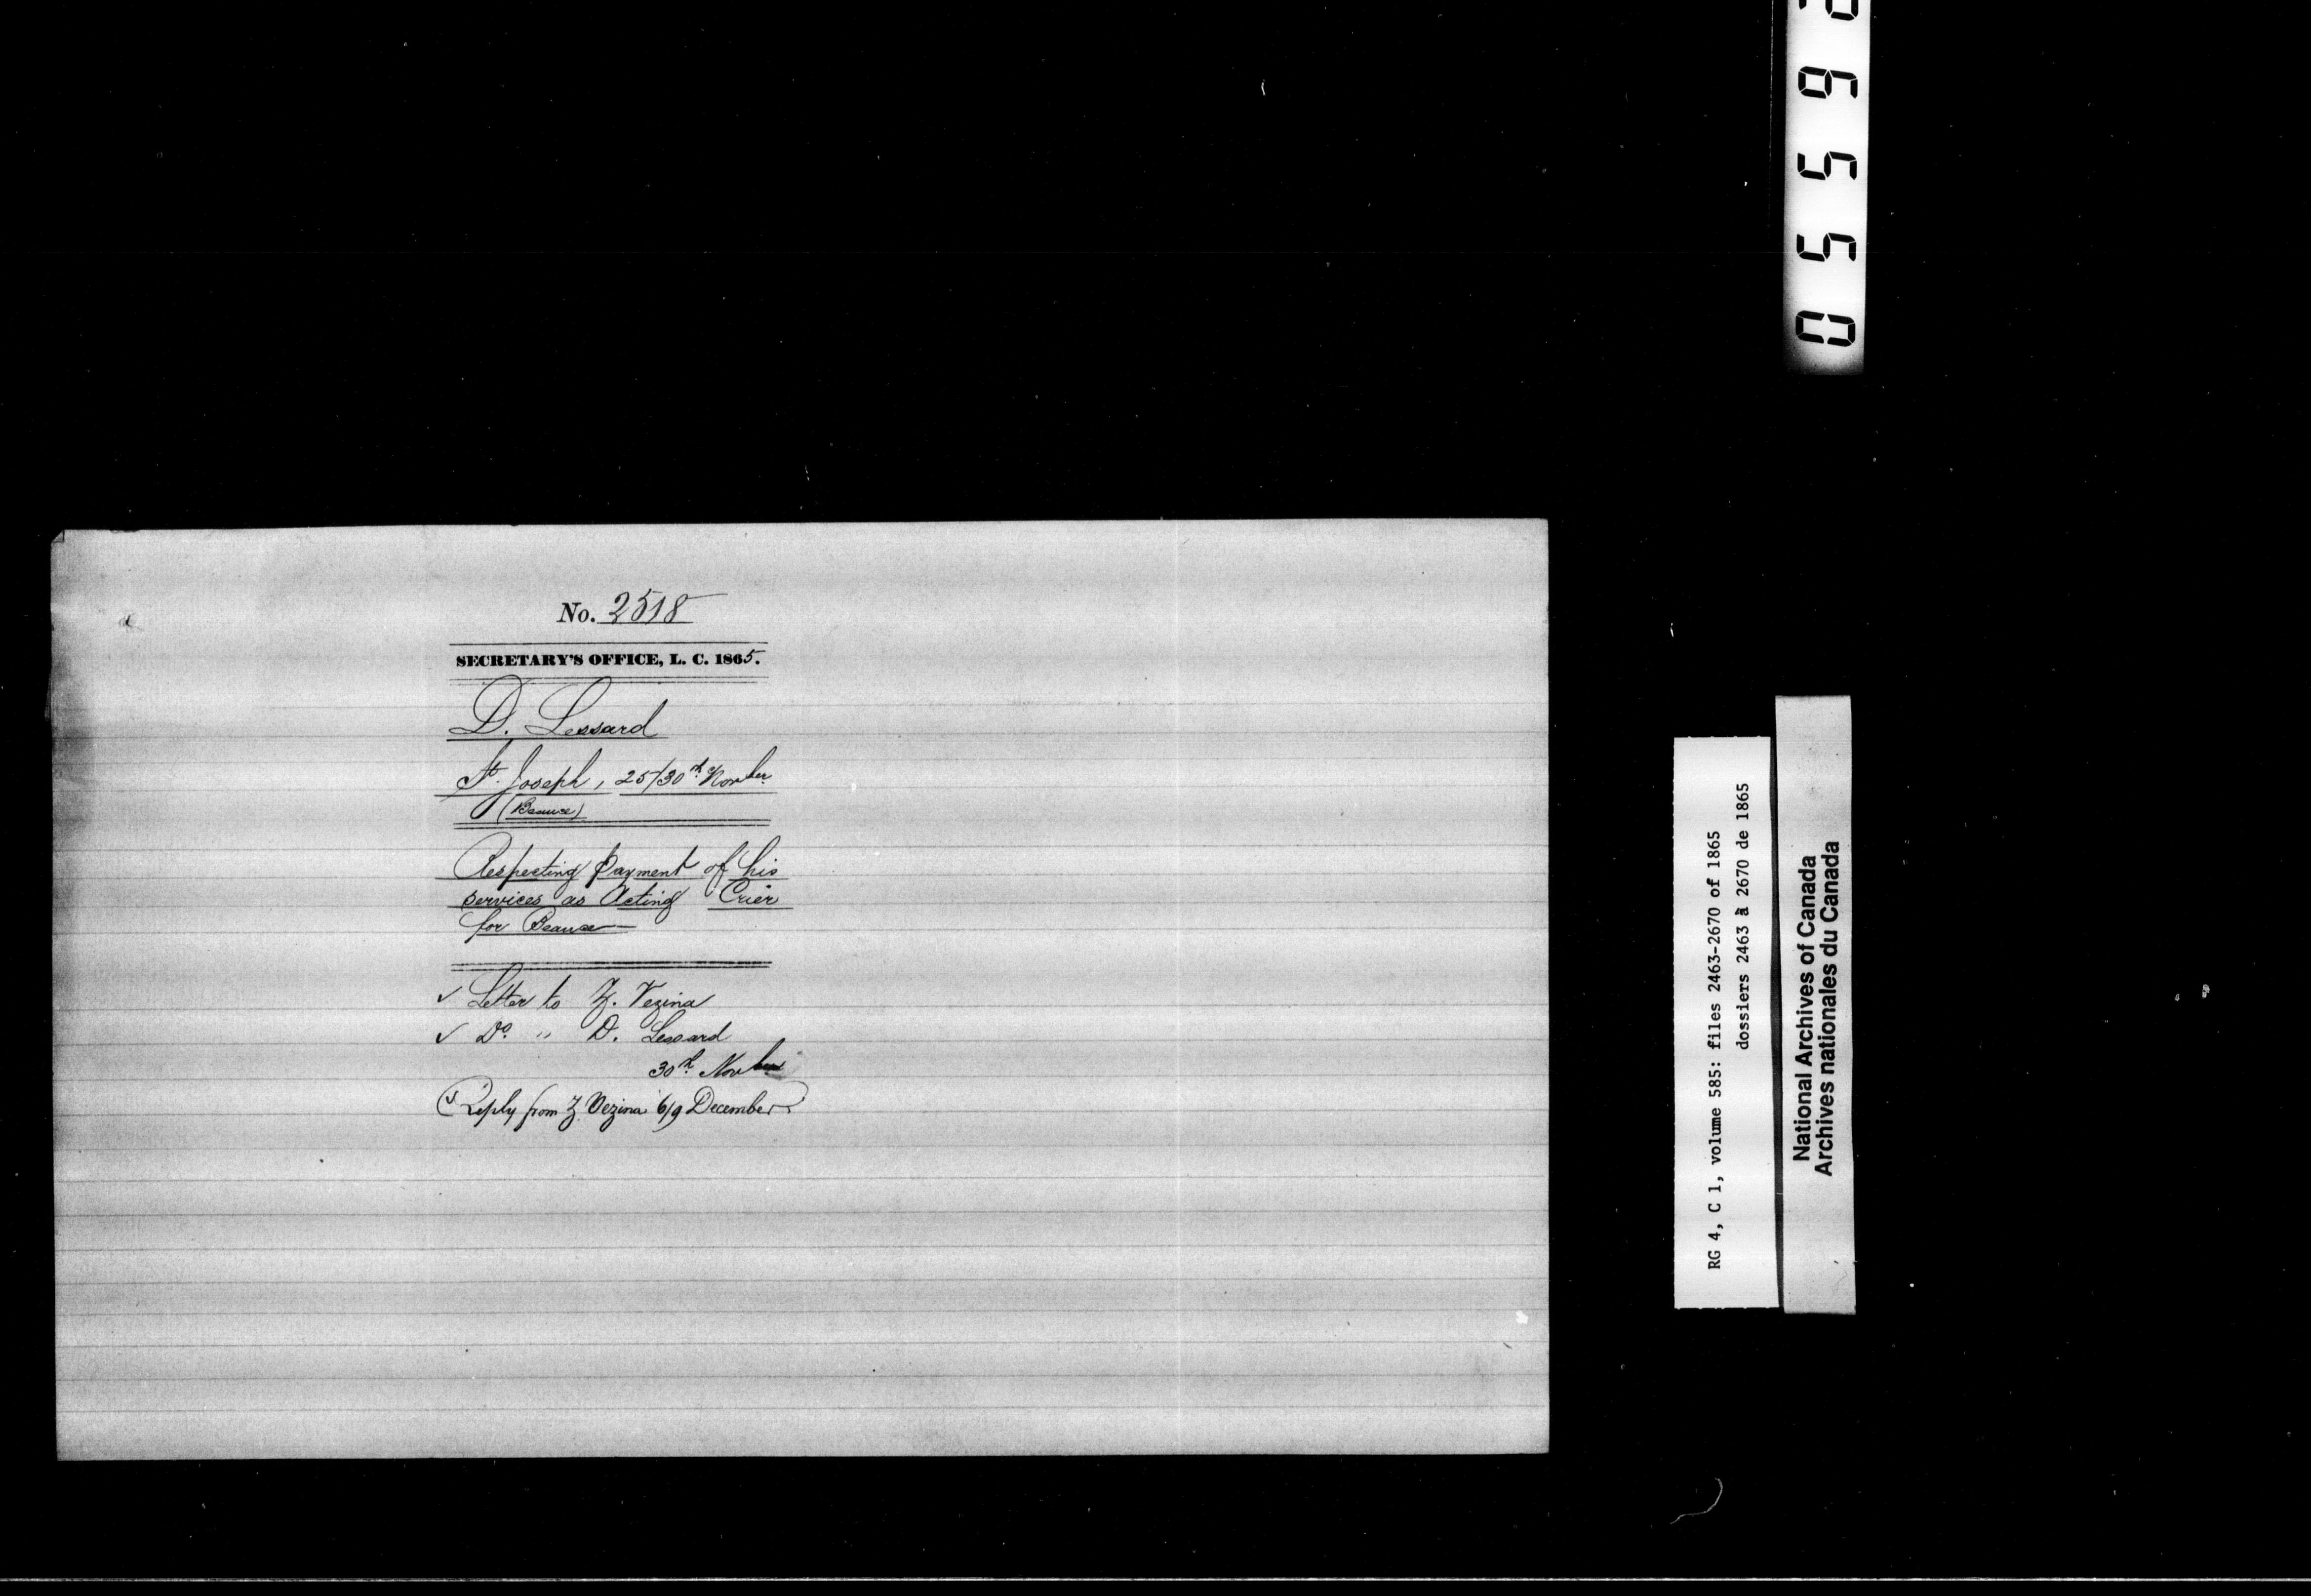 No. 2518
SECRETARY'S OFFICE, L. C. 1865.
D. Lessard
St. Joseph, 25/30th Novber
(Beauce)
Respecting Payment of his
services as Acting Crier
for Beauce
✓ Letter to Z. Vezina
✓ Do. " D. Lessard
30th Novber
✓ Reply from Z Vezina 6/9 December
0 5 5 9
RG 4, C 1, volume 585: files 2463-2670 of 1865
dossiers 2463 à 2670 de 1865
National Archives of Canada
Archives nationales du Canada